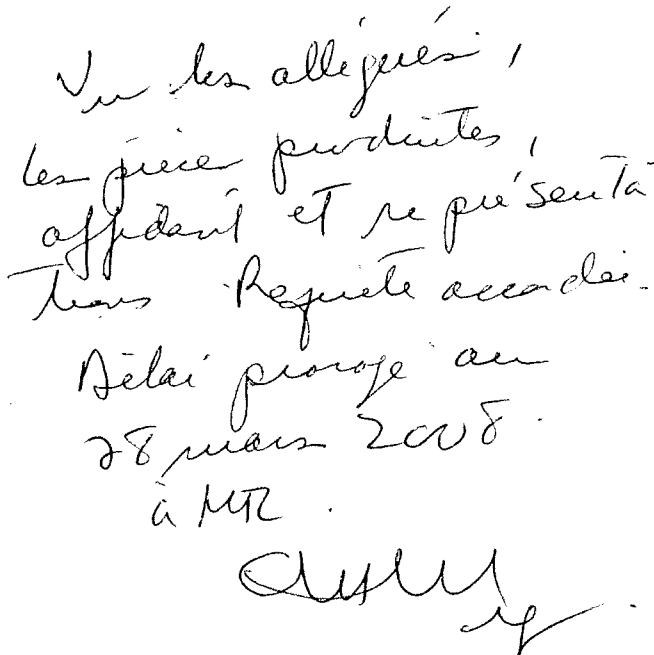 Vu les allégués,
les pièces produites,
affidavit et représenta
tions Requête accordée.
Délai prorogé au
28 mars 2008.
à MTL.